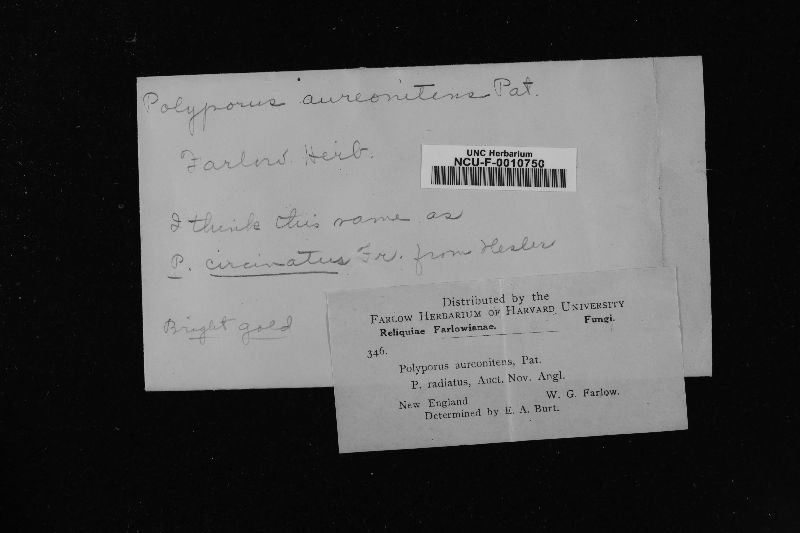 Polyporus aureonitens Pat.
Farlow Herb.
UNC Herbarium
NCU-F-0010750
I think this name as
P. circinatus Fr. from Hesler
Bright gold
Distributed by the
FARLOW HERBARIUM OF HARVARD UNIVERSITY
Reliquiae Farlowianae. Fungi.
346.
Polyporus aureonitens, Pat.
P. radiatus, Auct. Nov. Angl.
New England W. G. Farlow.
Determined by E. A. Burt.